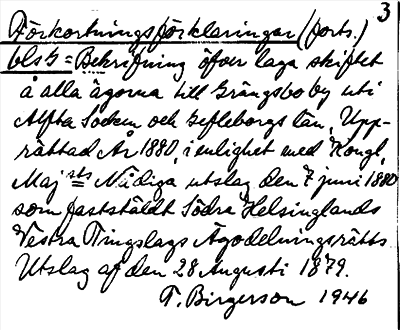 3
Förkortningsförklaringar (forts.)
blsG = Bekrifning öfver laga skiftet
å alla ägorna till Grängsbo by uti
Alfta Socken och Gefleborgs län, Upp-
rättad År 1880, i enlighet med Kongl.
Maj:sts Nådiga utslag den 7 juni 1880
som fastställdt Södra Helsinglands
Vestra Tingslags Ägodelningsrätts
Utslag af den 28 Augusti 1879.
T. Birgerson 1946